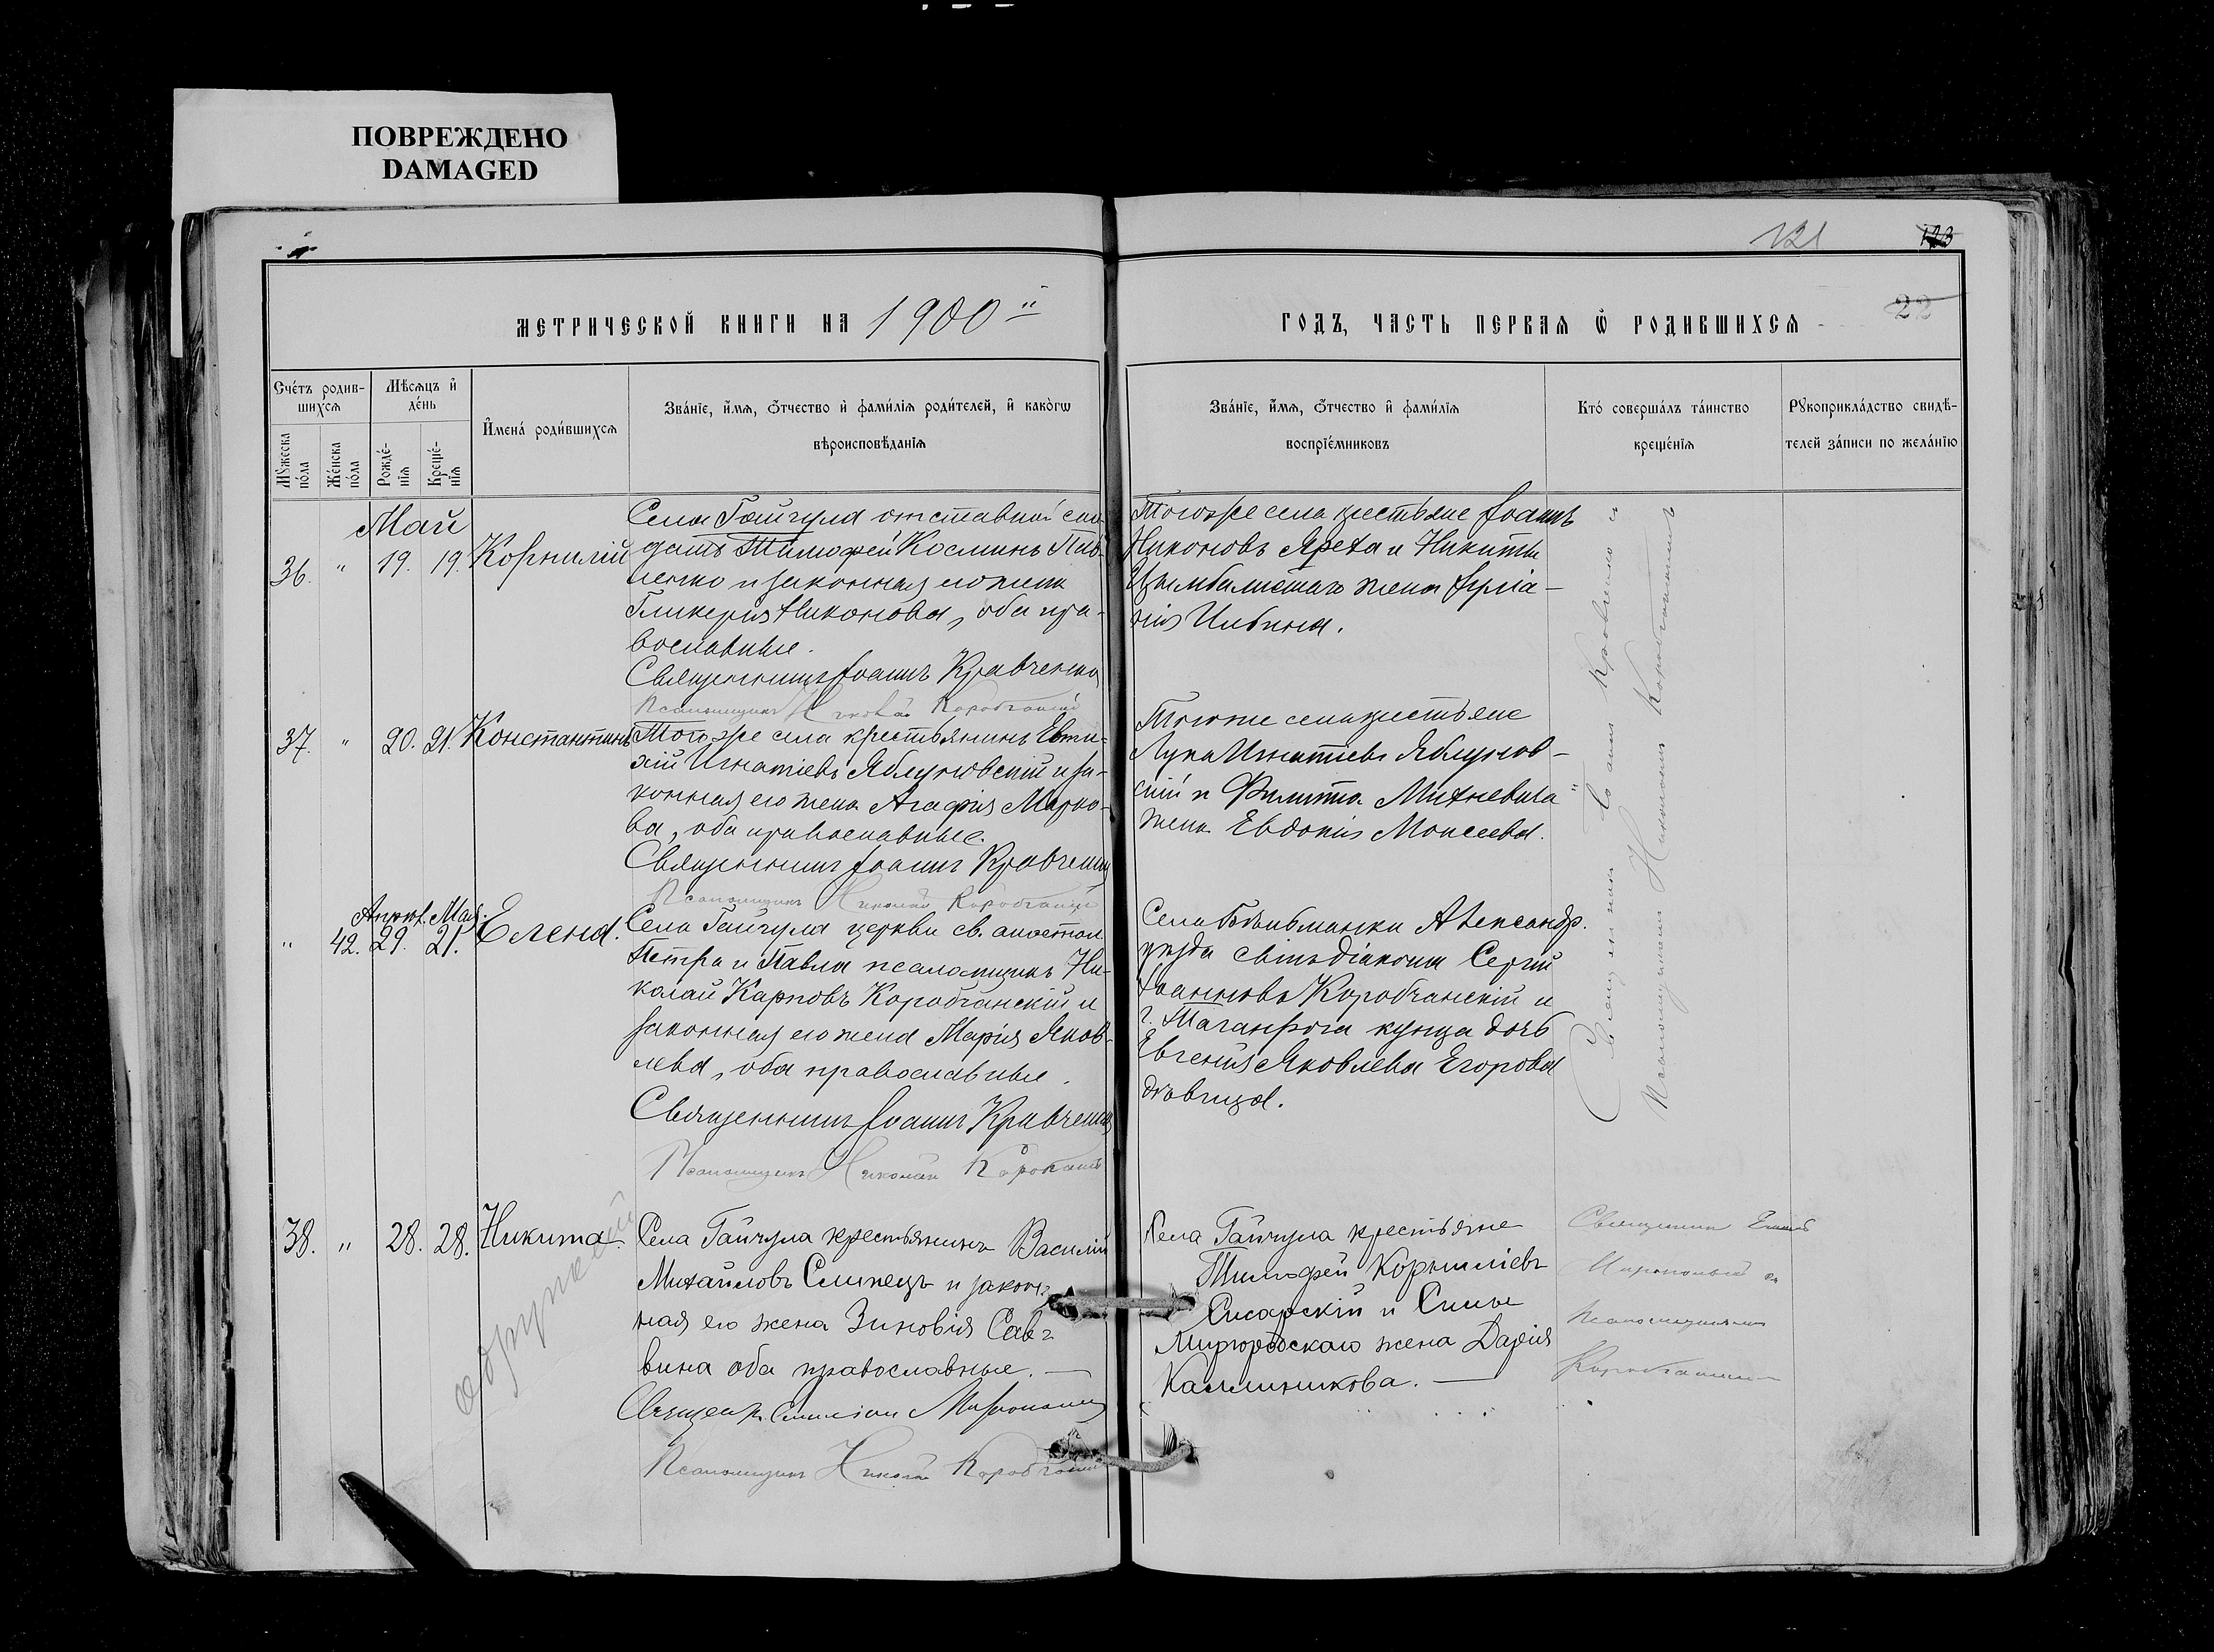 ПОВРЕЖДЕНО
DAMAGED
121
123
МЕТРИЧЕСКОЙ КНИГИ НА 1900 й
ГОДЪ, ЧАСТЬ ПЕРВАЯ Ѡ РОДИВШИХСЯ
22
Счетъ родив-
шихся
Мужеска
пола
Женска
пола
Мѣсяцъ и
день
Рожде-
нія
Креще-
нія
Имена родившихся
Званіе, имя, отчество и фамилія родителей, и какогѡ
вѣроисповѣданія
Званіе, имя, отчество и фамилія
воспріемниковъ
Кто совершалъ таинство
крещенія
Рукоприкладство свидѣ-
телей записи по желанію
Май
36. " 19. 19. Корнилій
Села Гайчула отставной сол-
датъ Тимофей Косминъ Пав-
ленко и законная его жена
Гликерія Никонова, оба пра-
вославные.
Священникъ Іоаннъ Кравченко
Псаломщикъ Николай Коробчанскій
Того же села крестьяне Іоаннъ
Никоновъ Ярета и Никиты
Цымбалистаго жена Іулiа-
нія
37. " 20. 21. Константинъ
Того же села крестьянинъ Евти-
хій Игнатіевъ Яблуновскій и за-
конная его жена Агафія Марко-
ва, оба православные.
Священникъ Іоаннъ Кравченко
Псаломщикъ Николай Коробчанскій
Того же села крестьяне
Лука Игнатіевъ Яблунов-
скій и Филиппа Михневича
жена Евдокія Моисеева.
Священникъ Іоаннъ Кравченко и
Псаломщикъ Николай Коробчанскій
Апрѣл. Мая.
" 42. 29. 21. Елена.
Села Гайчула церкви св. апостол.
Петра и Павла псаломщикъ Ни-
колай Карповъ Коробчанскій и
законная его жена Марія Яков-
лева, оба православные.
Священникъ Іоаннъ Кравченко
Псаломщикъ Николай Коробчанскій
Села Александр.
уѣзда діаконъ Сергій
Іоанновъ Коробчанскій и
г. Таганрога купца дочь
Евгенія Яковлева Егорова
дѣвица.
38. " 28. 28. Никита.
Села Гайчула крестьянинъ Василій
Михайловъ Слипецъ и закон-
ная его жена Зиновія Сав-
вина оба православные. —
Священ. Мирономъ
Псаломщикъ Николай Коробчанскій
Села Гайчула крестьяне
Тимофей Корниліевъ
Сисарскій и Симы
Миргородскаго жена Дарія
Каллиникова. —
Священникъ
и
Псаломщикъ
Коробчанскій